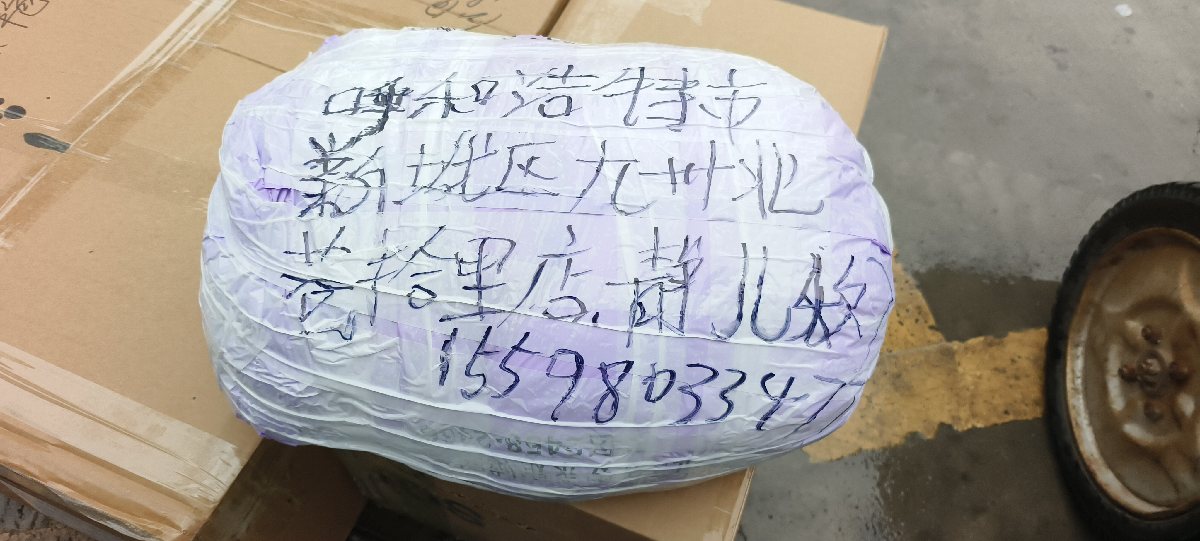 呼和浩特市
新城区九州北
苔拾里店.前儿教
15598033477